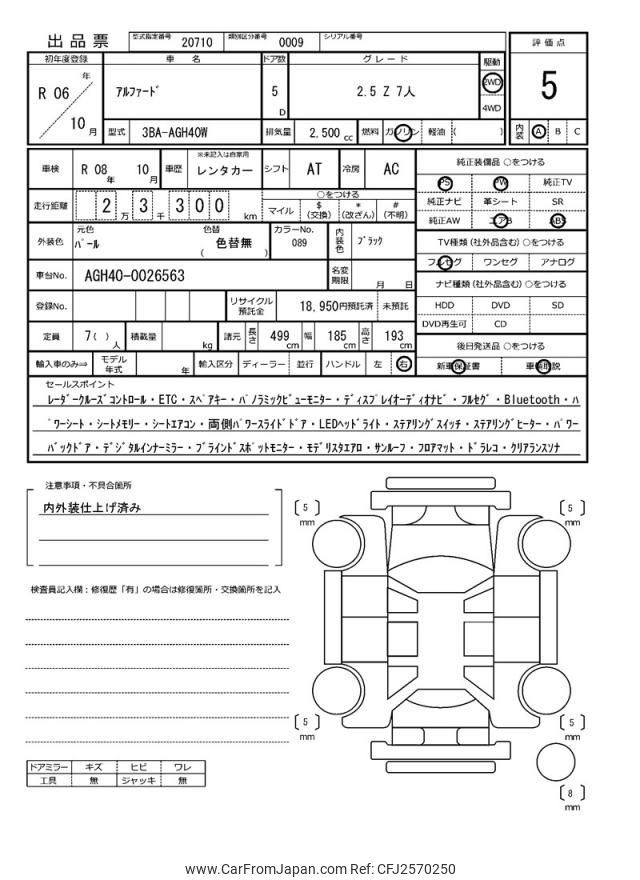 出品票 型式指定番号 20710 類別区分番号 0009 シリアル番号
評価点
5
内装 A B C
初年度登録 車名 ドア数 グレード 駆動
R 06 年 10 月
アルファード 5 D 2.5 Z 7人 2WD 4WD
型式 3BA-AGH40W 排気量 2,500 cc 燃料 ガソリン 軽油 ( )
車検 R 08 年 10 月 車歴 ※未記入は自家用 レンタカー シフト AT 冷房 AC
走行距離 2 万 3 千 3 0 0 km
○をつける
マイル $ (交換) * (改ざん) # (不明)
外装色 元色 パール 色替 色替無 ( ) カラーNo. 089 内装色 ブラック
車台No. AGH40-0026563 名変期限 月 日
登録No. リサイクル預託金 18,950円預託済 未預託
定員 7( ) 人 積載量 kg 諸元 長さ 499 cm 幅 185 cm 高さ 193 cm
輸入車のみ⇒ モデル年式 年 輸入区分 ディーラー 並行 ハンドル 左 右
純正装備品 ○をつける
PS PW 純正TV
純正ナビ 革シート SR
純正AW エアB ABS
TV種類(社外品含む)○をつける
フルセグ ワンセグ アナログ
ナビ種類(社外品含む)○をつける
HDD DVD SD
DVD再生可 CD
後日発送品 ○をつける
新車保証書 車輌取説
セールスポイント
レーダークルーズコントロール・ETC・スペアキー・パノラミックビューモニター・ディスプレイオーディオナビ・フルセグ・Bluetooth・ハ
ワーシート・シートメモリー・シートエアコン・両側パワースライドドア・LEDヘッドライト・ステアリングスイッチ・ステアリングヒーター・パワー
バックドア・デジタルインナーミラー・ブラインドスポットモニター・モデリスタエアロ・サンルーフ・フロアマット・ドラレコ・クリアランスソナ
注意事項・不具合箇所
内外装仕上げ済み
検査員記入欄:修復歴「有」の場合は修復箇所・交換箇所を記入
[ 5 ] mm
[ 5 ] mm
[ 5 ] mm
[ 5 ] mm
[ 8 ] mm
ドアミラー キズ ヒビ ワレ
工具 無 ジャッキ 無
www.CarFromJapan.com Ref: CFJ2570250